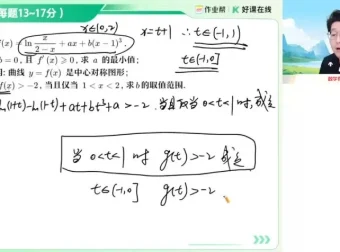 每题13~17分）
作业帮 | 好课在线
x∈(0,2)
x=t+1 ∴ t∈(-1,1)
f(x) = ln x/(2-x) + ax + b(x-1)³.
t∈(-1,0]
b = 0, 且 f′(x) ⩾ 0, 求 a 的最小值;
明: 曲线 y = f(x) 是中心对称图形;
f(x) > -2, 当且仅当 1 < x < 2, 求 b 的取值范围.
ln(1+t)-ln(1-t)+at+bt³+a>-2. 当且仅当 0<t<1 时, 成立
当 0<t<1 时 g(t)>-2 成立
t∈(-1,0] g(t)>-2